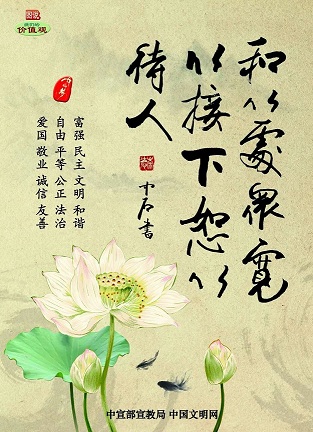 我们的
价值观
和以处众宽
以接下恕以
待人
中石书
富强 民主 文明 和谐
自由 平等 公正 法治
爱国 敬业 诚信 友善
中宣部宣教局 中国文明网